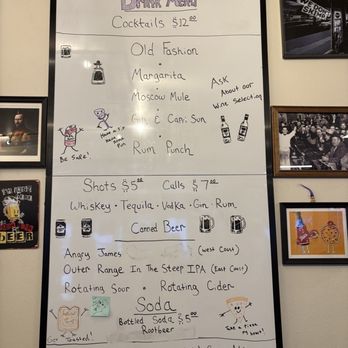 Drink Menu
Cocktails $12.00
Old Fashion
Margarita
Moscow Mule
Gin & Cari: Sun
Rum Punch
Ask
About our
Wine Selection
Be Safe!
Shots $5.00 Calls $7.00
Whiskey · Tequila · Vodka · Gin · Rum
Canned Beer
Angry James (West Coast)
Outer Range In The Steep IPA (East Coast)
Rotating Sour · Rotating Cider
Soda
Bottled Soda $5.00
Rootbeer
Get Toasted!
BEER